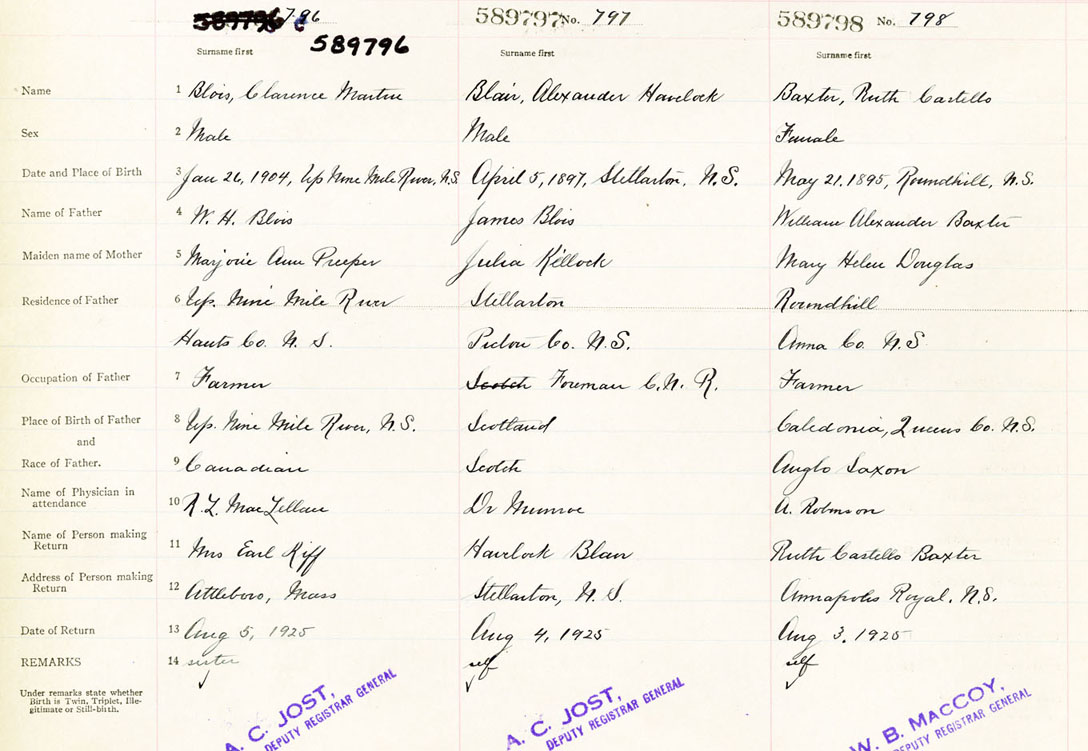 589796 796 589797 No. 797 589798 No. 798
c 589796
Surname first Surname first Surname first
Name 1 Blois, Clarence Martin Blair, Alexander Havelock Baxter, Ruth Castello
Sex 2 Male Male Female
Date and Place of Birth 3 Jan 26, 1904, Up Nine Mile River, N.S. April 5, 1897, Stellarton, N.S. May 21, 1895, Roundhill, N.S.
Name of Father 4 W. H. Blois James Blois William Alexander Baxter
Maiden name of Mother 5 Marjorie Ann Preeper Julia Killock Mary Helen Douglas
Residence of Father 6 Up. Nine Mile River Stellarton Roundhill
Hants Co. N. S. Pictou Co. N.S. Anna Co. N.S
Occupation of Father 7 Farmer Scotch Foreman C.N.R. Farmer
Place of Birth of Father 8 Up. Nine Mile River, N.S. Scotland Caledonia, Queens Co. N.S.
and
Race of Father. 9 Canadian Scotch Anglo Saxon
Name of Physician in
attendance 10 Dr Munroe A. Robinson
Name of Person making
Return 11 Mrs Earl Kiff Havelock Blair Ruth Castello Baxter
Address of Person making
Return 12 Attleboro, Mass Stellarton, N.S. Annapolis Royal, N.S.
Date of Return 13 Aug 5, 1925 Aug 4, 1925 Aug 3, 1925
REMARKS 14 sister self self
Under remarks state whether
Birth is Twin, Triplet, Ille-
gitimate or Still-birth.
A. C. JOST, A. C. JOST, W. B. MACCOY,
DEPUTY REGISTRAR GENERAL DEPUTY REGISTRAR GENERAL DEPUTY REGISTRAR GENERAL